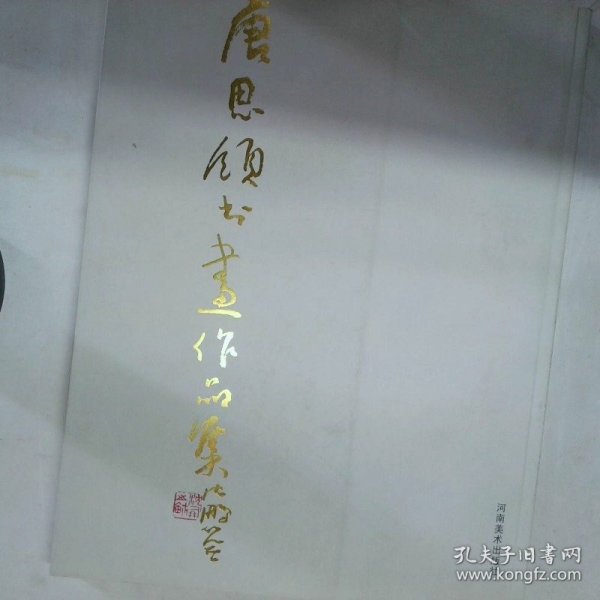 唐思领书畫作品集
河南美术出
孔夫子旧书网
www.kongfz.com